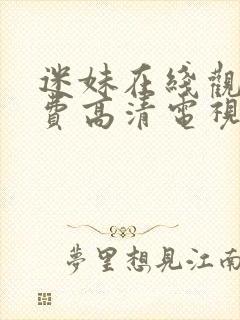 迷妹在綫觀
費高清電視
夢里想見江南